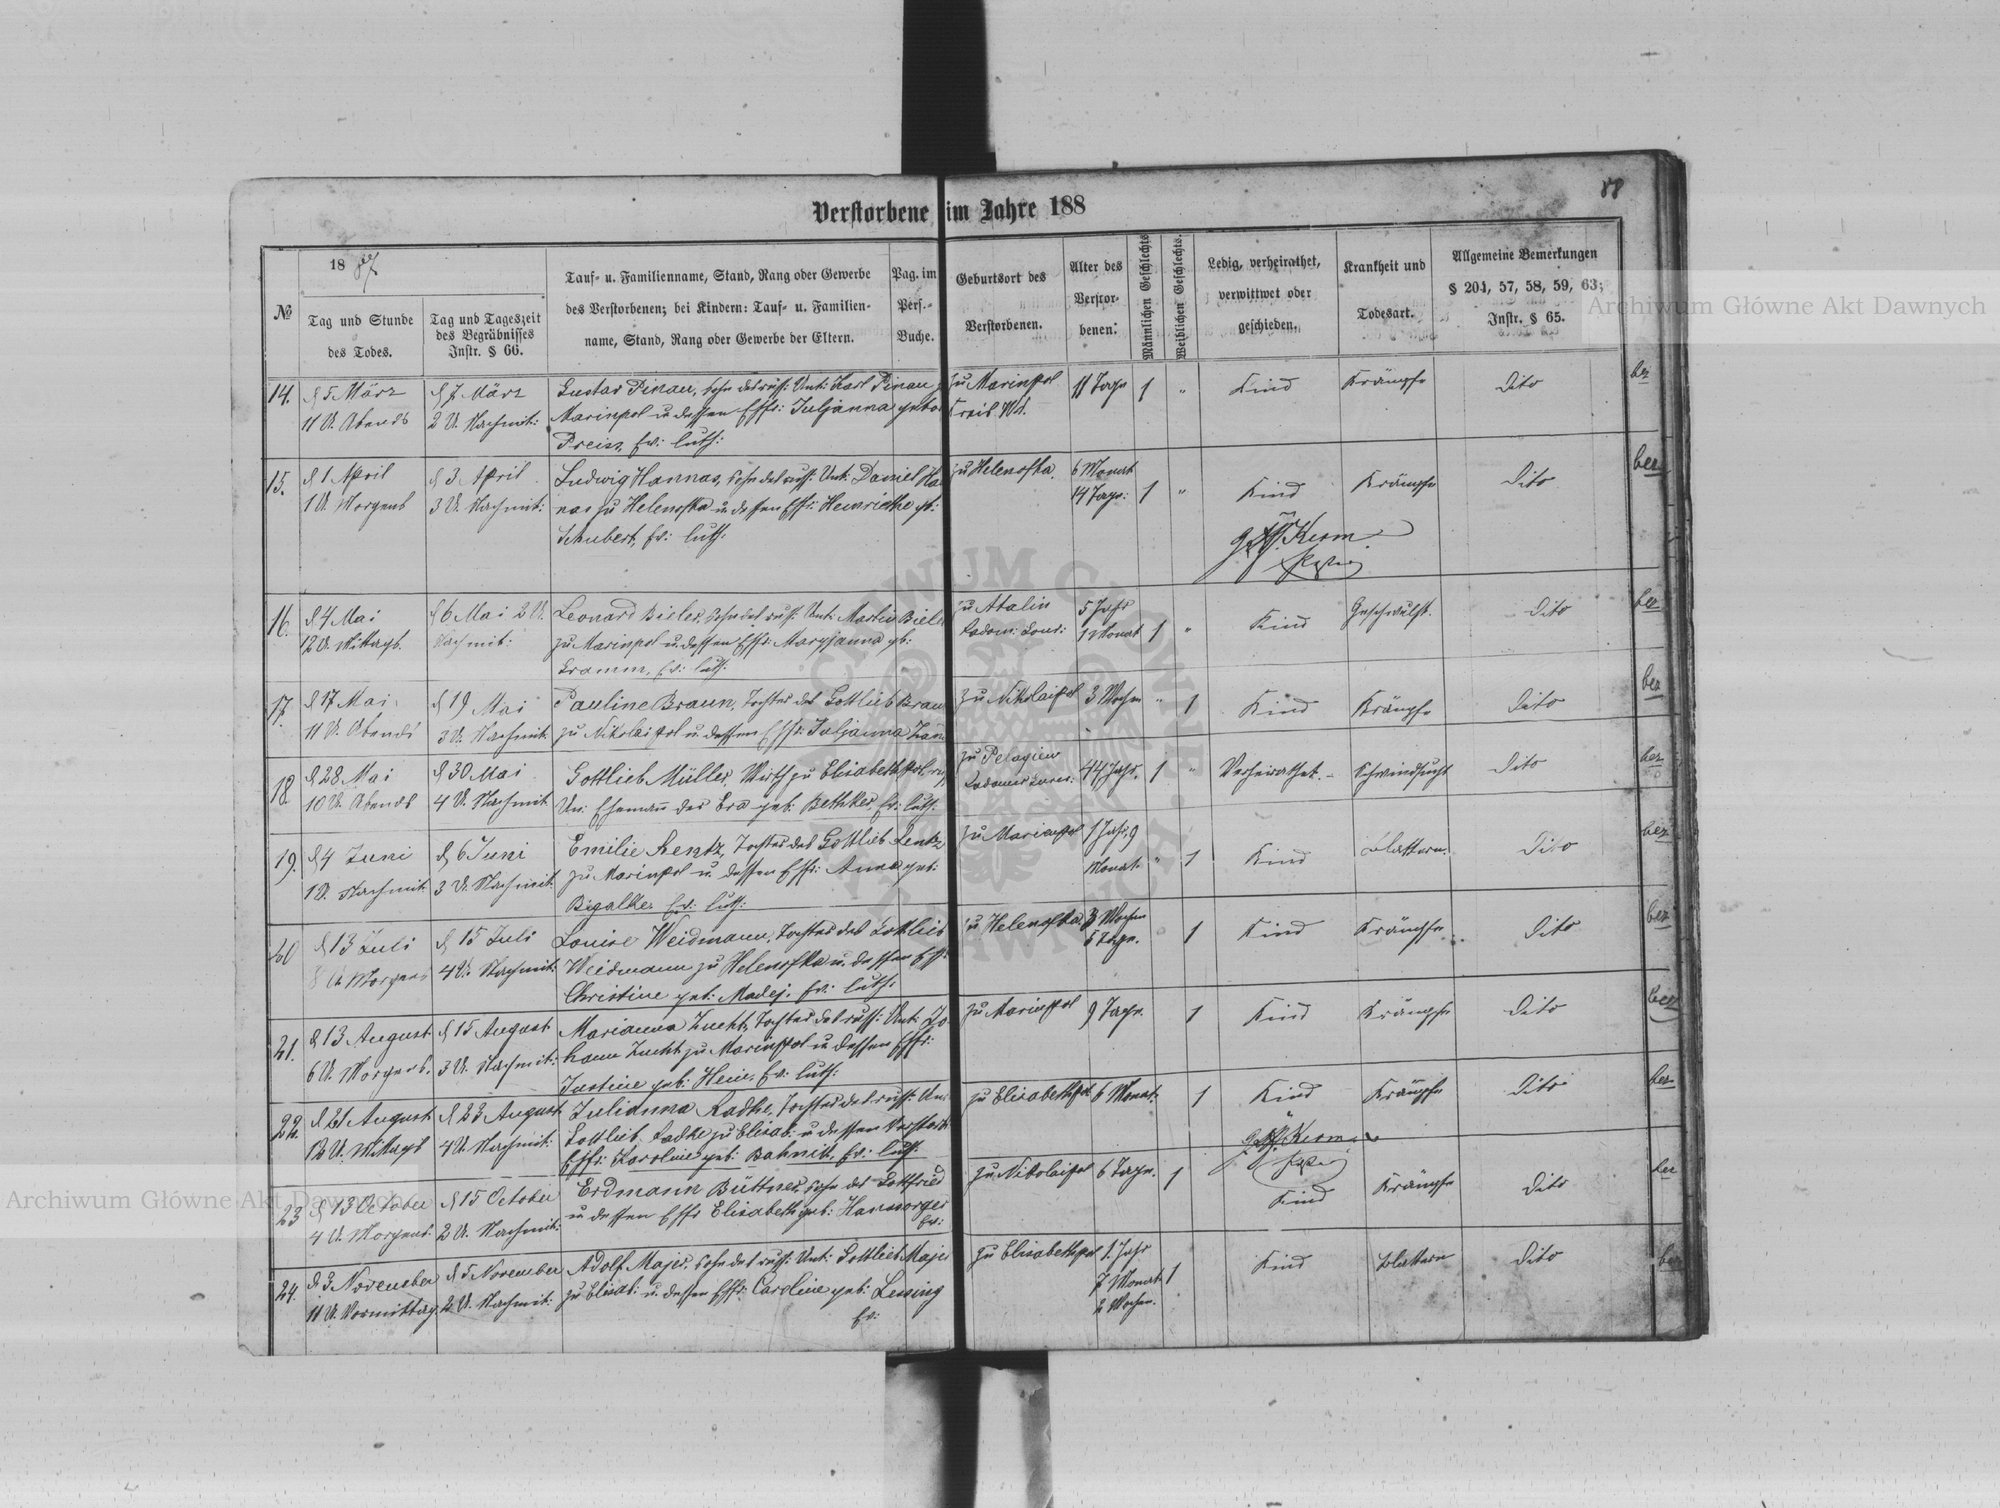 88
Verstorbene im Jahre 188
№
1887
Tag und Stunde
des Todes.
Tag und Tageszeit
des Begräbnisses
Instr. § 66.
Tauf- u. Familienname, Stand, Rang oder Gewerbe
des Verstorbenen; bei Kindern: Tauf- u. Familien-
name, Stand, Rang oder Gewerbe der Eltern.
Pag. im
Pers.-
Buche.
Geburtsort des
Verstorbenen.
Alter des
Verstor-
benen:
Männlichen Geschlechts
Weiblichen Geschlechts.
Ledig, verheirathet,
verwittwet oder
geschieden.
Krankheit und
Todesart.
Allgemeine Bemerkungen
§ 204, 57, 58, 59, 63;
Instr. § 65.
14.
d 5 März
11 U. Abends
d 7 März
2 U. Nachmit:
Gustav Pinau, Sohn des russ: Unt: Karl Pinau zu
Marinpol u dessen Ehfr: Juljanna gebo
Preiss, Ev: luth:
zu Marinpol
Kreis Wl.
11 Tage
1
"
Kind
Krämpfe
Dito
bez
15.
d 1 April
1 U. Morgens
d 3 April
3 U. Nachmit:
Ludwig Hannas, Sohn des russ: Unt: Daniel Ha
nas zu Helenofka u. dessen Ehfr: Heinriethe gb:
Schubert, Ev: luth:
zu Helenofka
6 Monat
14 Tage:
1
"
Kind
Krämpfe
Dito
bez
16.
d 4 Mai
12 U. Mittags.
d 6 Mai 2 U.
Nachmit:
Leonard Bieler, Sohn des russ: Unt: Martin Biele
zu Marinpol u. dessen Ehfr: Maryjanna gb:
Gramm, Ev: luth:
zu Atalin
Radom: Gouv:
5 Jahr
1 Monat
1
"
Kind
Geschwulst.
Dito
bez
17.
d 17 Mai
11 U. Abends
d 19 Mai
3 U. Nachmit.
Pauline Braun, Tochter des Gottlieb Brau
zu Nikolaipol u. dessen Ehfr: Juljanna
zu Nikolaipol
3 Wochen
"
1
Kind
Krämpfe
Dito
bez
18.
d 28 Mai
10 U. Abends
d 30 Mai
4 U. Nachmit
Gottlieb Müller, Wirth zu Elisabethpol
Un: Ehemann der Eva geb: Bethker, Ev: luth:
zu Pelagiew
44 Jahr.
1
"
Verheirathet.
Schwindsucht
Dito
bez
19.
d 4 Juni
1 U. Nachmit.
d 6 Juni
3 U. Nachmit.
Emilie Rentz, Tochter des Gottlieb Rentz
zu Marinpol u. dessen Ehfr: Anna geb:
Bigalke. Ev: luth:
zu Marienpol
1 Jahr 9
Monat.
"
1
Kind
Blattern.
Dito
bez
20
d 13 Juli
8 U. Morgens
d 15 Juli
4 U. Nachmit:
Louise Weidmann, Tochter des Gottlieb
Weidmann zu Helenofka u. dessen Ehf:
Christine geb: Madej. Ev: luth:
zu Helenofka
3 Wochen
5 Tage.
1
Kind
Krämpfe
Dito
bez
21.
d 13 August
6 U. Morgens.
d 15 August
3 U. Nachmit:
Marianna Zucht, Tochter des russ: Unt: Jo
hann Zucht zu Marinpol u. dessen Ehfr:
Justine geb: Hein, Ev: luth:
zu Marinpol
9 Tage.
1
Kind
Krämpfe
Dito
bez
22.
d 21 August
12 U. Mittags
d 23 August
4 U. Nachmit:
Julianna Radke, Tochter des russ: Unt
Gottlieb Radke zu Elisab: u. dessen Verstorb:
Ehfr: Karoline geb: Bahnik, Ev: luth:
zu Elisabethpol
6 Monat.
1
Kind
Krämpfe
Dito
bez
23
d 13 October
4 U. Morgens.
d 15 October
2 U. Nachmit:
Erdmann Büttner, Sohn des Gottfried
u dessen Ehfr Elisabeth geb: Hansorger
Ev:
zu Nikolaipol
6 Tage.
1
Kind
Krämpfe
Dito
bez
24.
d 3 November
11 U. Vormittag
d 5 November
2 U. Nachmit:
Adolf Majer, Sohn des russ: Unt: Gottlieb Majer
zu Elisab: u. dessen Ehfr: Caroline geb: Lessing
Ev:
zu Elisabethpol
1 Jahr
7 Monat
2 Wochen.
1
Kind
Blattern
Dito
bez
Archiwum Główne Akt Dawnych
Archiwum Główne Akt Dawnych